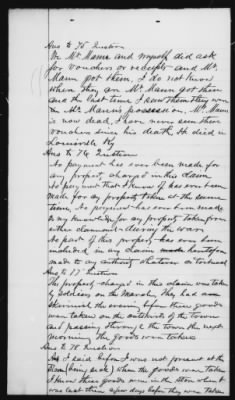 Ans to 75 Question
Mr Mann and myself did ask
for vouchers or receipts and Mr
Mann got them, I do not know
where they are Mr Mann got them
and the last time I saw them they were
in Mr Mann's possession, Mr Mann
is now dead, I have never seen these
vouchers since his death. He died in
Louisville Ky
Ans to 76 Question
No payment has ever been made for
any property charged in this claim
No payment that I know of has ever been
made for any property taken at the same
time, No payment has ever been made
to my knowledge for any property taken from
either claimant during the war
No part of this property has ever been
included in any claim heretofore
made to any
Ans to 77 Question
The property charged in this claim was taken
by soldiers on the march, They had
the evening before these goods
were taken on the outskirts of the town
and passing through the town the next
morning the goods were taken
Ans to 78 Question
As I said before I was not present at the
(being sick) when the goods were taken
I know these goods were in the store when I
was last there a few days before they were taken